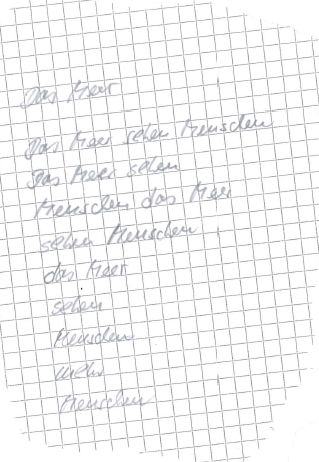 Das Meer
Das Meer sehen Menschen
Das Meer sehen
Menschen das Meer
sehen Menschen
das Meer
sehen
Menschen
mehr
Menschen